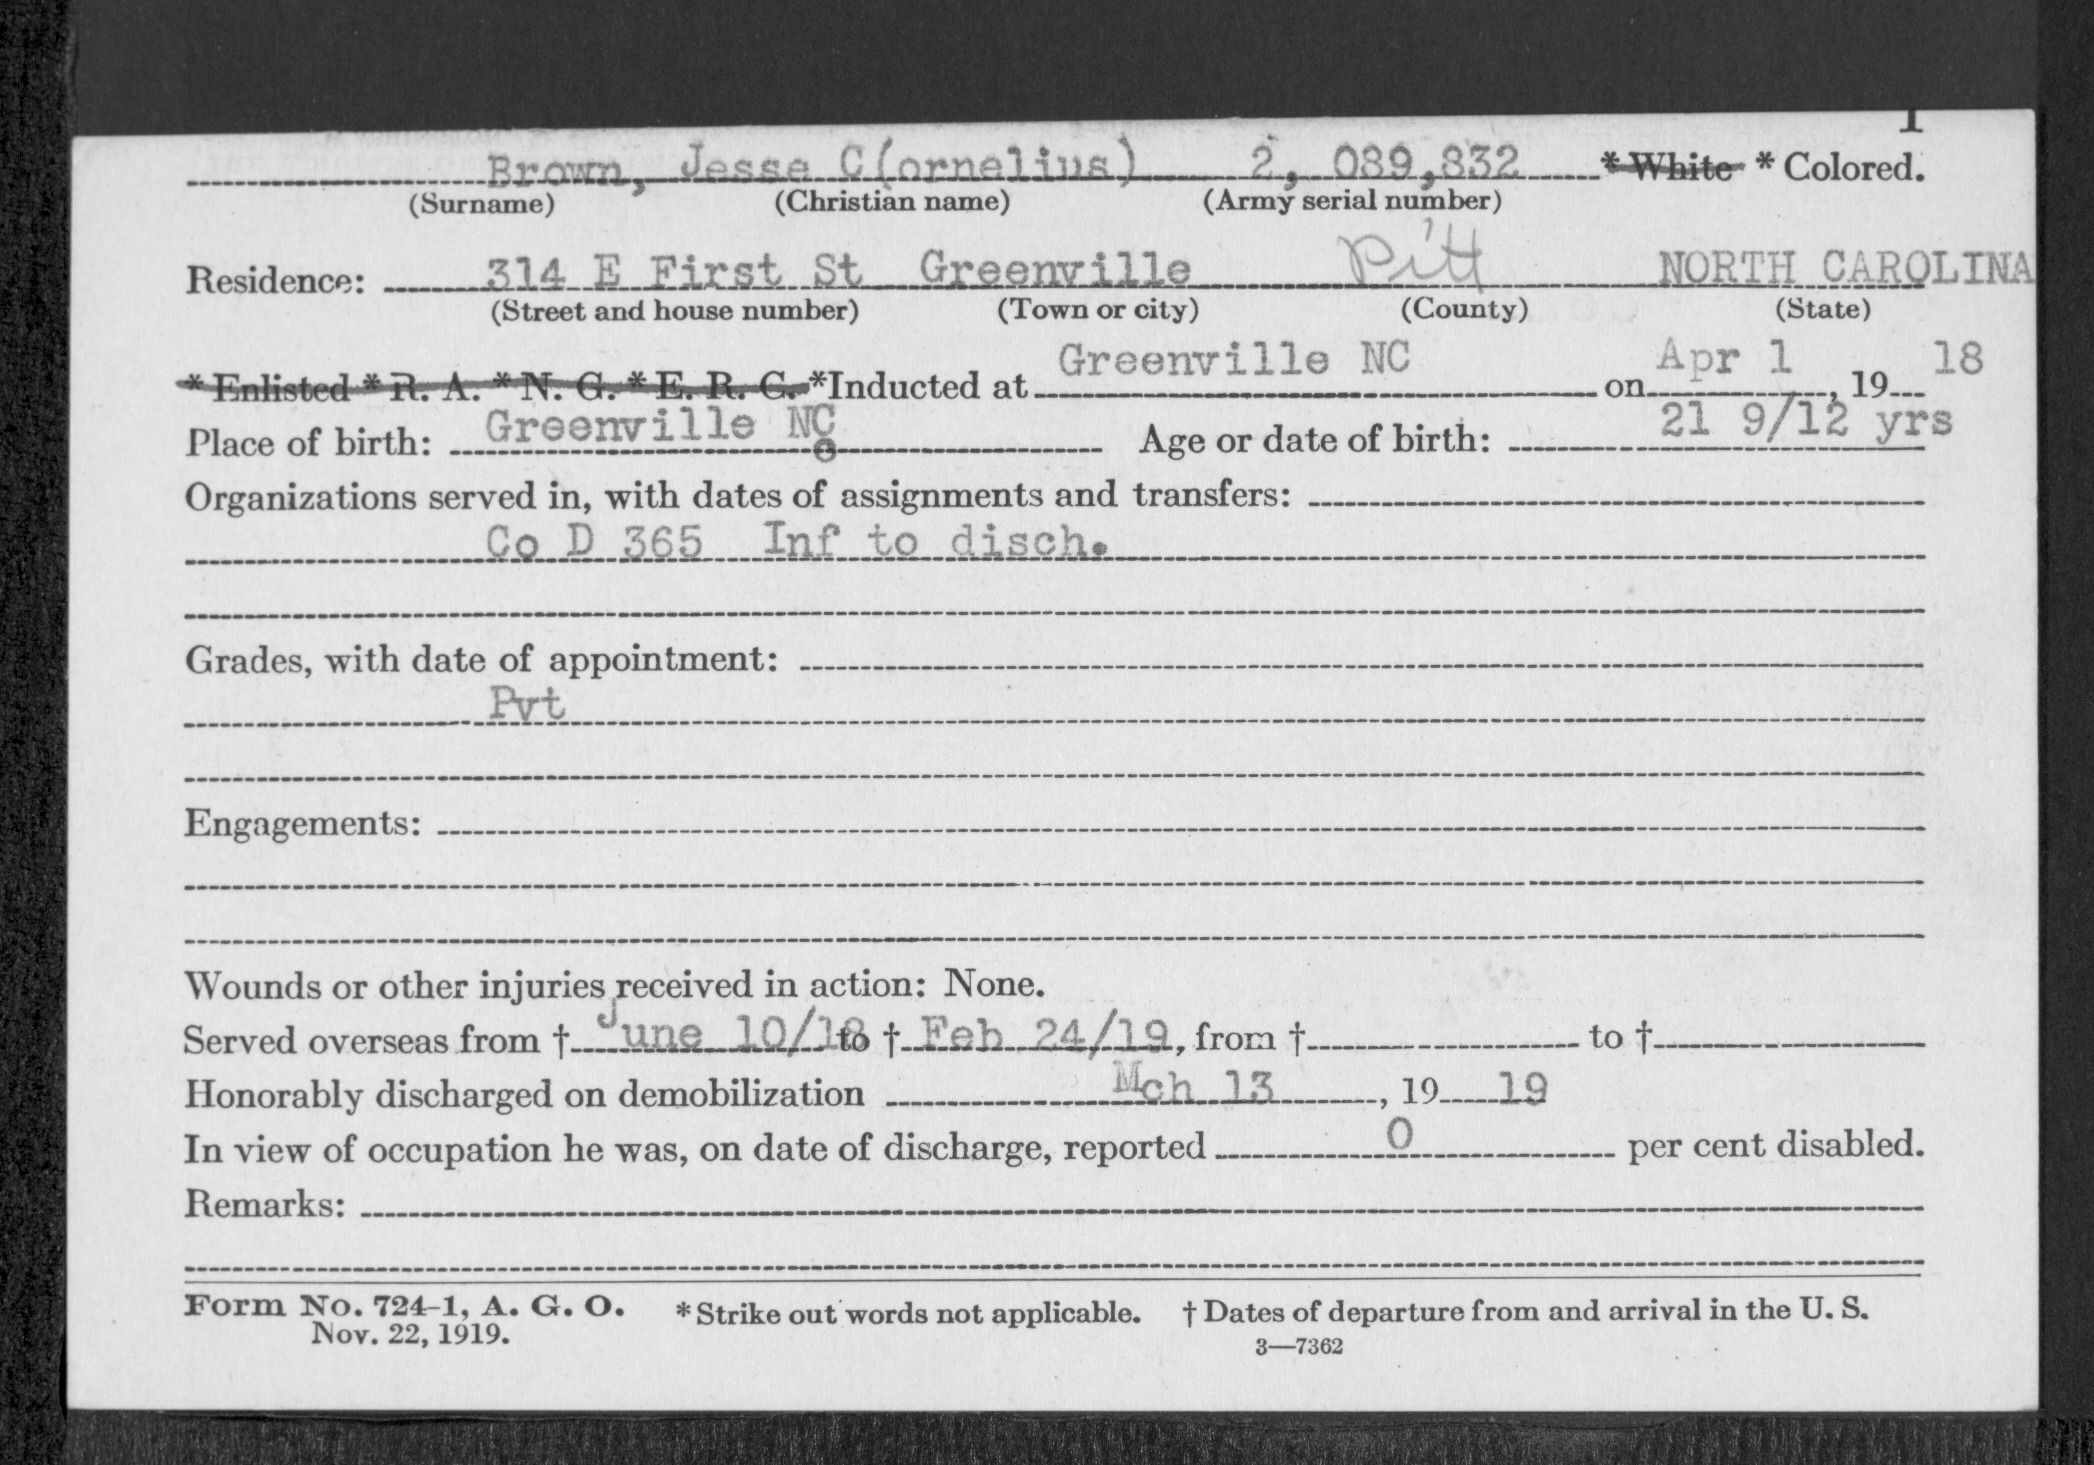 1
Brown, Jesse C(ornelius) 2, 089,832 * White * Colored.
(Surname) (Christian name) (Army serial number)
Residence: 314 E First St Greenville Pitt NORTH CAROLINA
(Street and house number) (Town or city) (County) (State)
* Enlisted * R. A. * N. G. * E. R. C. *Inducted at Greenville NC on Apr 1, 19 18
Place of birth: Greenville NC Age or date of birth: 21 9/12 yrs
Organizations served in, with dates of assignments and transfers:
Co D 365 Inf to disch.
Grades, with date of appointment:
Pvt
Engagements:
Wounds or other injuries received in action: None.
Served overseas from † June 10/18 to † Feb 24/19, from † to †
Honorably discharged on demobilization Mch 13, 19 19
In view of occupation he was, on date of discharge, reported 0 per cent disabled.
Remarks:
Form No. 724-1, A. G. O. * Strike out words not applicable. † Dates of departure from and arrival in the U. S.
Nov. 22, 1919. 3—7362